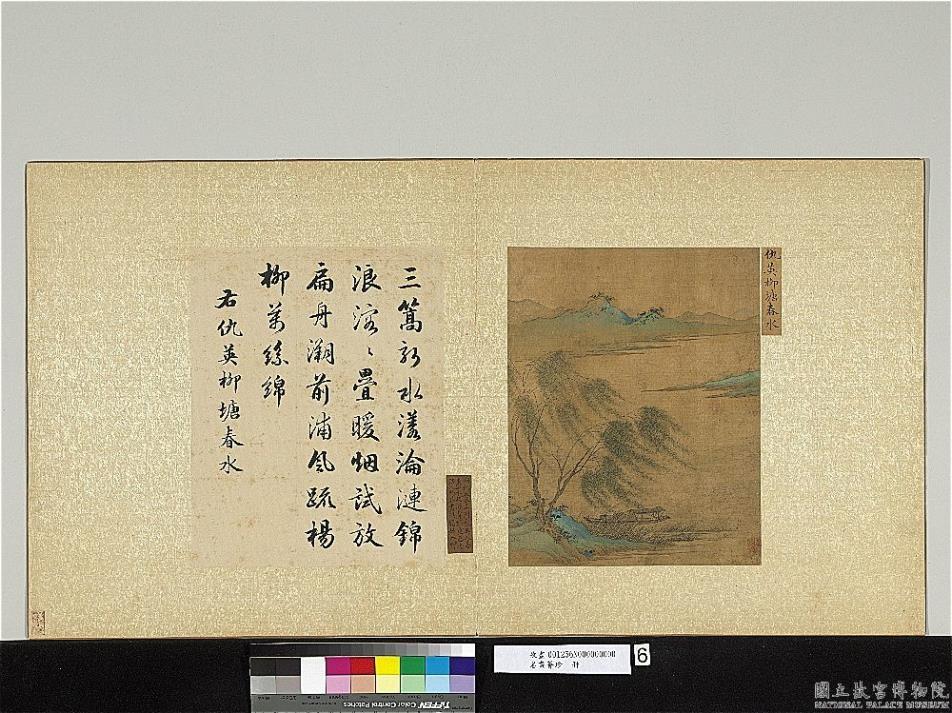 仇英柳塘春水
三篙新水漾淪漣錦
浪溶〻疊暖烟試放
扁舟溯前浦風疏楊
柳萬絲綿
右仇英柳塘春水
TIFFEN Color Control Patches
名畫薈珍 冊
6
國立故宮博物院
NATIONAL PALACE MUSEUM